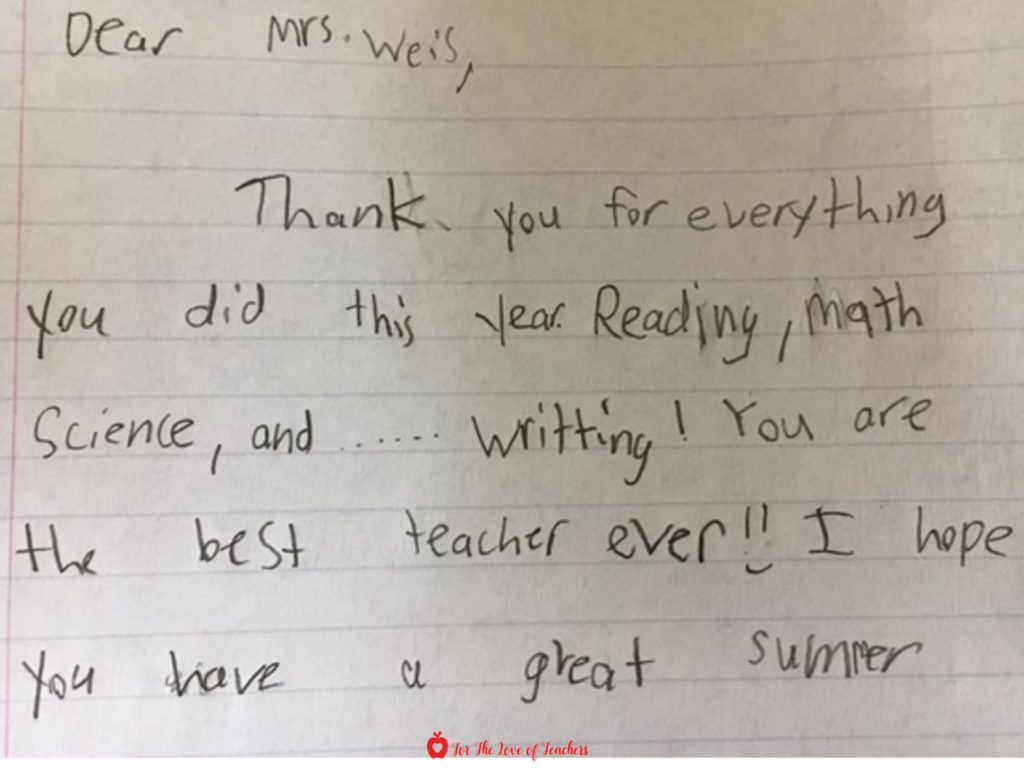 Dear Mrs. Weis,
Thank you for everything
you did this year. Reading, Math
Science, and ...... writting! You are
the best teacher ever!! I hope
you have a great summer
For The Love of Teachers